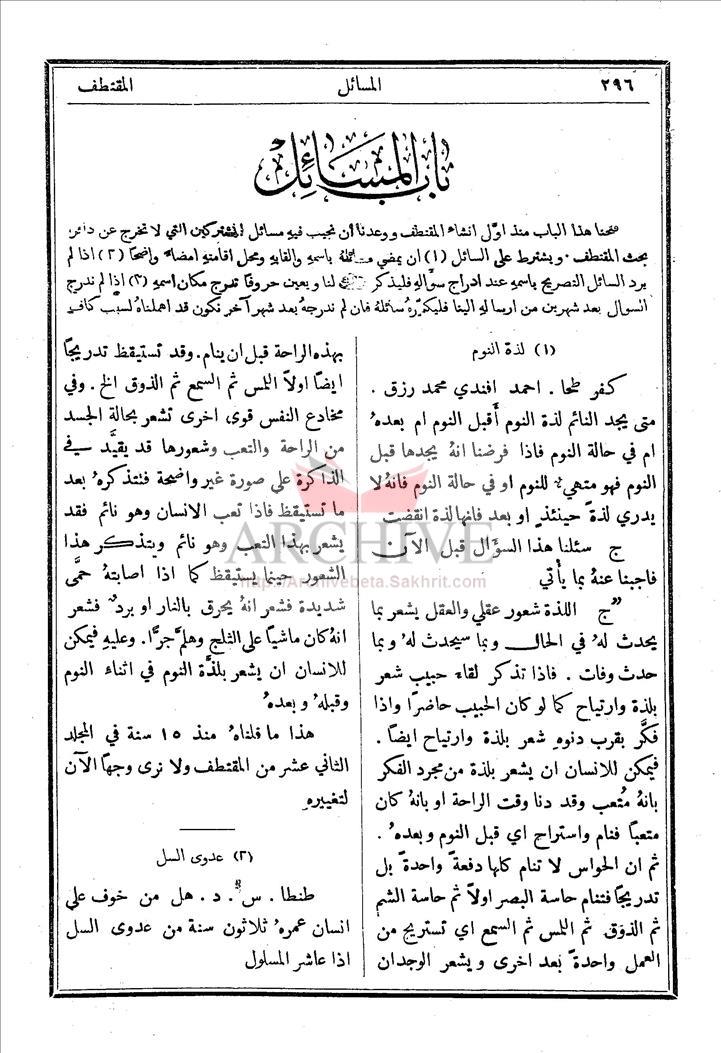 ٢٩٦
المسائل
المقتطف
باب المسائل
فتحنا هذا الباب منذ اول انشاء المقتطف ووعدنا ان نجيب فيه مسائل المشتركين التي لا تخرج عن دائرة
بحث المقتطف . ويشترط على السائل (١) ان يمضي مسائله باسمه والقابه ومحل اقامته امضاء واضحا (٢) اذا لم
يرد السائل التصريح باسمه عند ادراج سؤاله فليذكر لنا ويعين حروفا تدرج مكان اسمه (٣) اذا لم ندرج
السوال بعد شهرين من ارساله الينا فليكرره سائله فان لم ندرجه بعد شهر آخر نكون قد اهملناه لسبب كافٍ
(١) لذة النوم
كفر طحا . احمد افندي محمد رزق .
متى يجد النائم لذة النوم أَقبل النوم ام بعدهُ
ام في حالة النوم فاذا فرضنا انهُ يجدها قبل
النوم فهو متهيء للنوم او في حالة النوم فانهُ لا
يدري لذةً حينئذٍ او بعد فانها لذة انقضت
ج سئلنا هذا السؤال قبل الآن
فاجبنا عنهُ بما يأتي
"ج اللذة شعور عقلي والعقل يشعر بما
يحدث لهُ في الحال وبما سيحدث لهُ وبما
حدث وفات . فاذا تذكر لقاء حبيب شعر
بلذة وارتياح كما لو كان الحبيب حاضرًا واذا
فكَّر بقرب دنوه شعر بلذة وارتياح ايضًا .
فيمكن للانسان ان يشعر بلذة من مجرد الفكر
بانهُ مُتعب وقد دنا وقت الراحة او بانهُ كان
متعبًا فنام واستراح اي قبل النوم وبعدهُ .
ثم ان الحواس لا تنام كلها دفعةً واحدةً بل
تدريجًا فتنام حاسة البصر اولاً ثم حاسة الشم
ثم الذوق ثم اللمس ثم السمع اي تستريح من
العمل واحدةً بعد اخرى ويشعر الوجدان
بهذه الراحة قبل ان ينام . وقد تستيقظ تدريجًا
ايضًا اولاً اللمس ثم السمع ثم الذوق الخ . وفي
مخادع النفس قوى اخرى تشعر بحالة الجسد
من الراحة والتعب وشعورها قد يقيَّد في
الذاكرة على صورة غير واضحة فتتذكرهُ بعد
ما تستيقظ فاذا تعب الانسان وهو نائم فقد
يشعر بهذا التعب وهو نائم ويتذكر هذا
الشعور حينما يستيقظ كما اذا اصابتهُ حمَّى
شديدة فشعر انهُ يحرق بالنار او بردٌ فشعر
انهُ كان ماشيًا على الثلج وهلمَّ جرًّا . وعليهِ فيمكن
للانسان ان يشعر بلذَّة النوم في اثناء النوم
وقبلهُ وبعدهُ
هذا ما قلناهُ منذ ١٥ سنة في المجلد
الثاني عشر من المقتطف ولا نرى وجهًا الآن
لتغييره
(٢) عدوى السل
طنطا . س . د . هل من خوف على
انسان عمرهُ ثلاثون سنة من عدوى السل
اذا عاشر المسلول
ARCHIVE
http://Archivebeta.Sakhrit.com